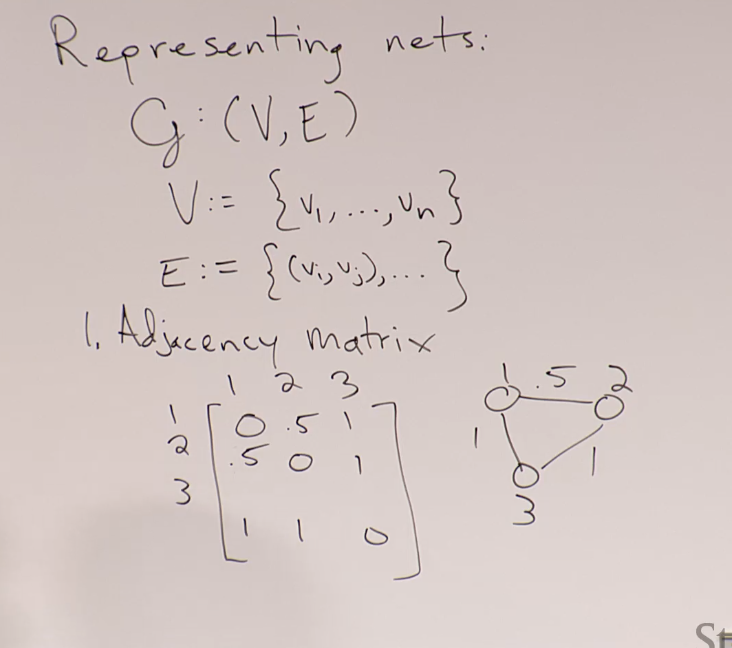 Representing nets:
G: (V, E)
V := {v1, ..., vn}
E := {(vi, vj), ...}
1. Adjacency matrix
1 2 3
1 [0 .5 1]
2 [.5 0 1]
3 [1 1 0]
1 .5 2
1 1
3